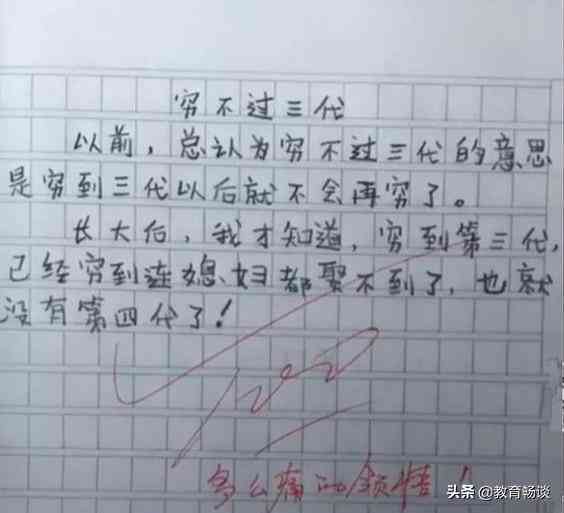 穷不过三代
以前，总认为穷不过三代的意思
是穷到三代以后就不会再穷了。
长大后，我才知道，穷到第三代，
已经穷到连媳妇都娶不到了，也就
没有第四代了！
100
多么痛的领悟！
头条 @教育畅谈